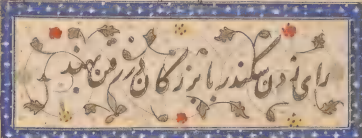 رای زدن سکندر با بزرگان در رفتن بهند